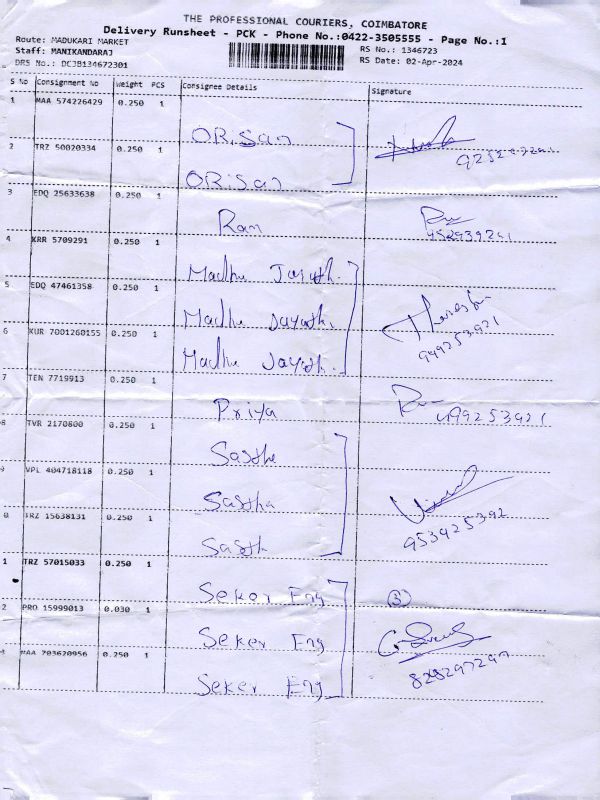 THE PROFESSIONAL COURIERS, COIMBATORE
Delivery Runsheet - PCK - Phone No.:0422-3505555 - Page No.:1
Route: MADUKARI MARKET
Staff: MANIKANDARAJ RS No.: 1346723
DRS No.: DCJB134672301 RS Date: 02-Apr-2024
S No Consignment No Weight PCS Consignee Details Signature
1 MAA 574226429 0.250 1
ORiSan
2 TRZ 50020334 0.250 1
ORiSan
3 EDQ 25633638 0.250 1
Ram
4 KRR 5709291 0.250 1
Madhu
5 EDQ 47461358 0.250 1
Madhu
6 KUR 7001260155 0.250 1
Madhu
949253921
7 TEN 7719913 0.250 1
Priya
8 TVR 2170800 0.250 1
Sastha
9 VPL 404718118 0.250 1
Sastha
0 TRZ 15638131 0.250 1
Sastha
953925392
1 TRZ 57015033 0.250 1
Seker Eng 3
2 PRO 15999013 0.030 1
Seker Eng
3 MAA 703620956 0.250 1
Seker Eng